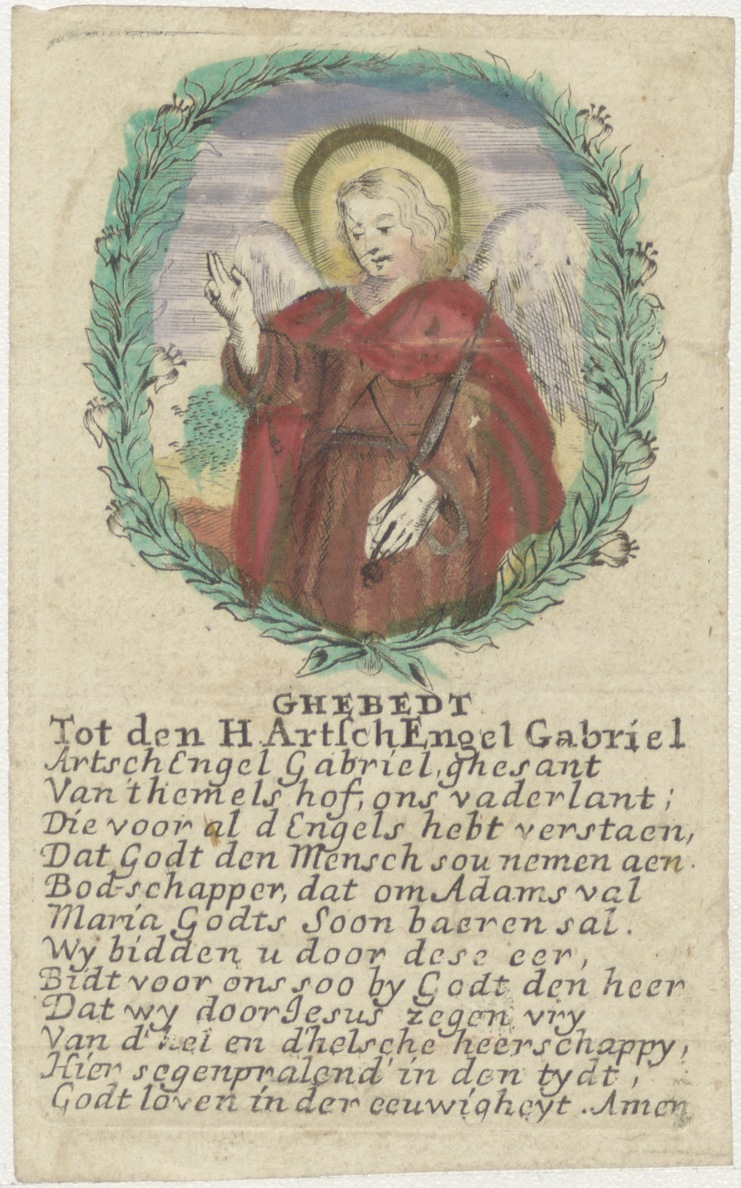 GHEBEDT
Tot den H. ArtschEngel Gabriel
ArtschEngel Gabriel, ghesant
Van 't hemels hof, ons vaderlant;
Die voor al d'Engels hebt verstaen,
Dat Godt den Mensch sou nemen aen.
Bod-schapper, dat om Adams val
Maria Godts Soon baeren sal.
Wy bidden u door dese eer,
Bidt voor ons soo by Godt den heer
Dat wy door Jesus zegen vry
Van d' hel en d'helsche heerschappy,
Hier segenpralend' in den tydt,
Godt loven in der eeuwigheyt. Amen